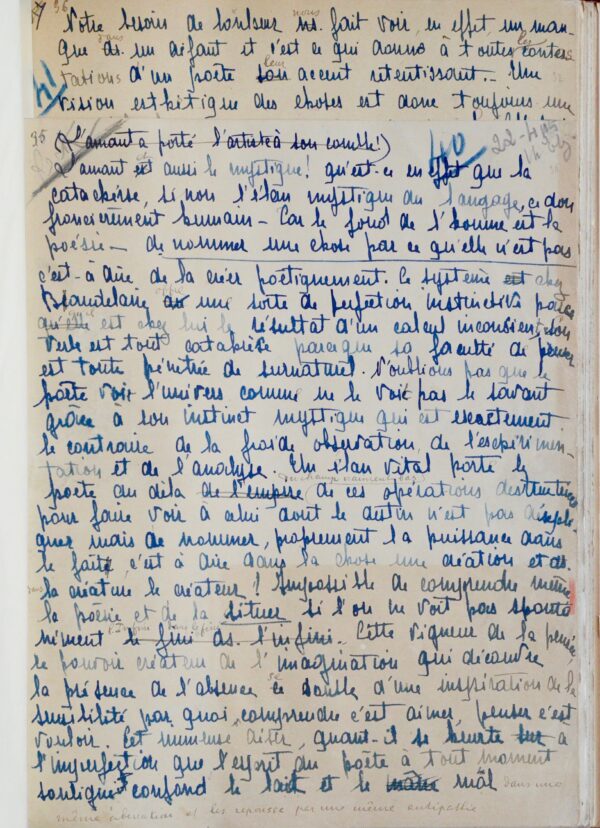 36
Notre besoin de bonheur nous fait voir, en effet, un man-
que ds. un aifant et c'est ce qui donne à toutes les contes-
tations d'un poète son leur accent retentissant. Une
41
vision esthétique des choses est donc toujours une
35
(L'amant a porté l'artiste à son comble!)
40
L'amant est aussi le mystique! qu'est-ce en effet que la
catachrèse, si non l'élan mystique du langage, ce don
foncièrement humain - Car le fond de l'homme est la
poésie - de nommer une chose par ce qu'elle n'est pas
c'est-à dire de la créer poétiquement. Ce système est chez
Beaudelaire une sorte de perfection instinctive parce
qu'elle est chez lui le résultat d'un calcul inconscient, son
verbe est tout catachrèse parceque sa faculté de penser
est toute pénétrée de surnaturel. N'oublions pas que le
poète voit l'univers comme ne le voit pas le savant
grâce à son instinct mystique qui est exactement
le contraire de la froide observation, de l'expérimen-
tation et de l'analyse. Un élan vital porte le
poète au delà de l'empire de ces opérations destructives
pour faire voir à celui dont le destin n'est pas d'expli-
quer mais de nommer, proprement la puissance dans
le fait, c'est à dire dans la chose une création et ds.
la créature le créateur! Impossible de comprendre même
la poésie et de la situer si l'on ne voit pas sponta
nément le fini ds. l'infini. Cette vigueur de la pensée,
ce pouvoir créateur de l'imagination qui découvre
la présence de l'absence se double d'une inspiration de la
sensibilité par quoi comprendre c'est aimer, penser c'est
vouloir. Cet immense désir, quant-il se heurte sur à
l'imperfection que l'esprit du poète à tout moment
souligne confond le laid et le mâl dans une
même aberration et les repousse par une même antipathie